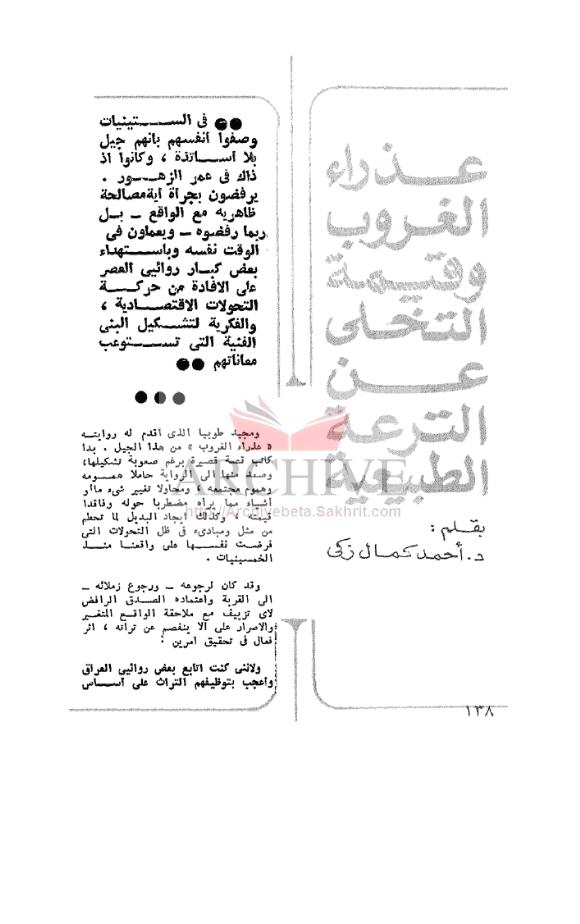 عذراء
الغروب
وقيمة
التخلى
عن
الترعة
الطبيعية
بقلم :
د. أحمد كمال زكى
●● فى الستينيات
وصفوا أنفسهم بانهم جيل
بلا اساتذة ، وكانوا اذ
ذاك فى عمر الزهور .
يرفضون بجراة اية مصالحة
ظاهريه مع الواقع ــ بل
ربما رفضوه ــ ويعملون فى
الوقت نفسه وباستهداء
بعض كبار روائيى العصر
على الافادة من حركة
التحولات الاقتصادية ،
والفكرية لتشكيل البنى
الفنية التى تستوعب
معاناتهم ●●
●●●
ومجيد طوبيا الذى اقدم له روايته
« عذراء الغروب » من هذا الجيل . بدا
كاتب قصة قصيرة برغم صعوبة تشكيلها،
وصعد منها الى الرواية حاملا همومه
وهموم مجتمعه ، ومحاولا تغيير شىء ما او
أشياء مما يراه مضطربا حوله وفاقدا
قيمته ، وكذلك ايجاد البديل لما تحطم
من مثل ومبادىء فى ظل التحولات التى
فرضت نفسها على واقعنا منذ
الخمسينيات .
وقد كان لرجوعه ــ ورجوع زملائه ــ
الى القرية واعتماده الصدق الرافض
لاى تزييف مع ملاحقة الواقع المتغير
والاصرار على الا ينفصم عن تراثه ، اثر
فعال فى تحقيق امرين :
ولاننى كنت اتابع بعض روائيى العراق
واعجب بتوظيفهم التراث على أساس
١٣٨
ARCHIVE
http://Archivebeta.Sakhrit.com